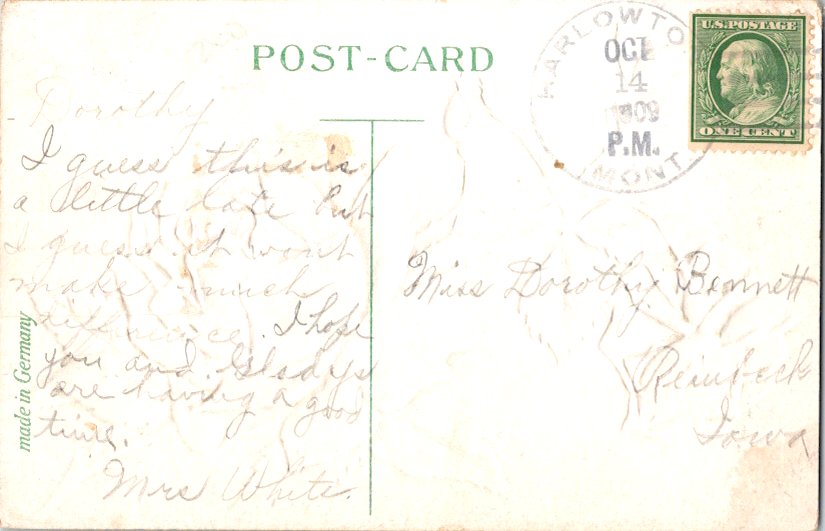 POST-CARD
HARLOWTO
OCT
14
1909
P.M.
MONT.
U.S.POSTAGE
ONE CENT
Dorothy
I guess this is
a little late but
I guess it wont
make much
difference. I hope
you and Gladys
are having a good
time.
Mrs White.
Miss Dorothy Bennett
Reinbeck
Iowa
made in Germany